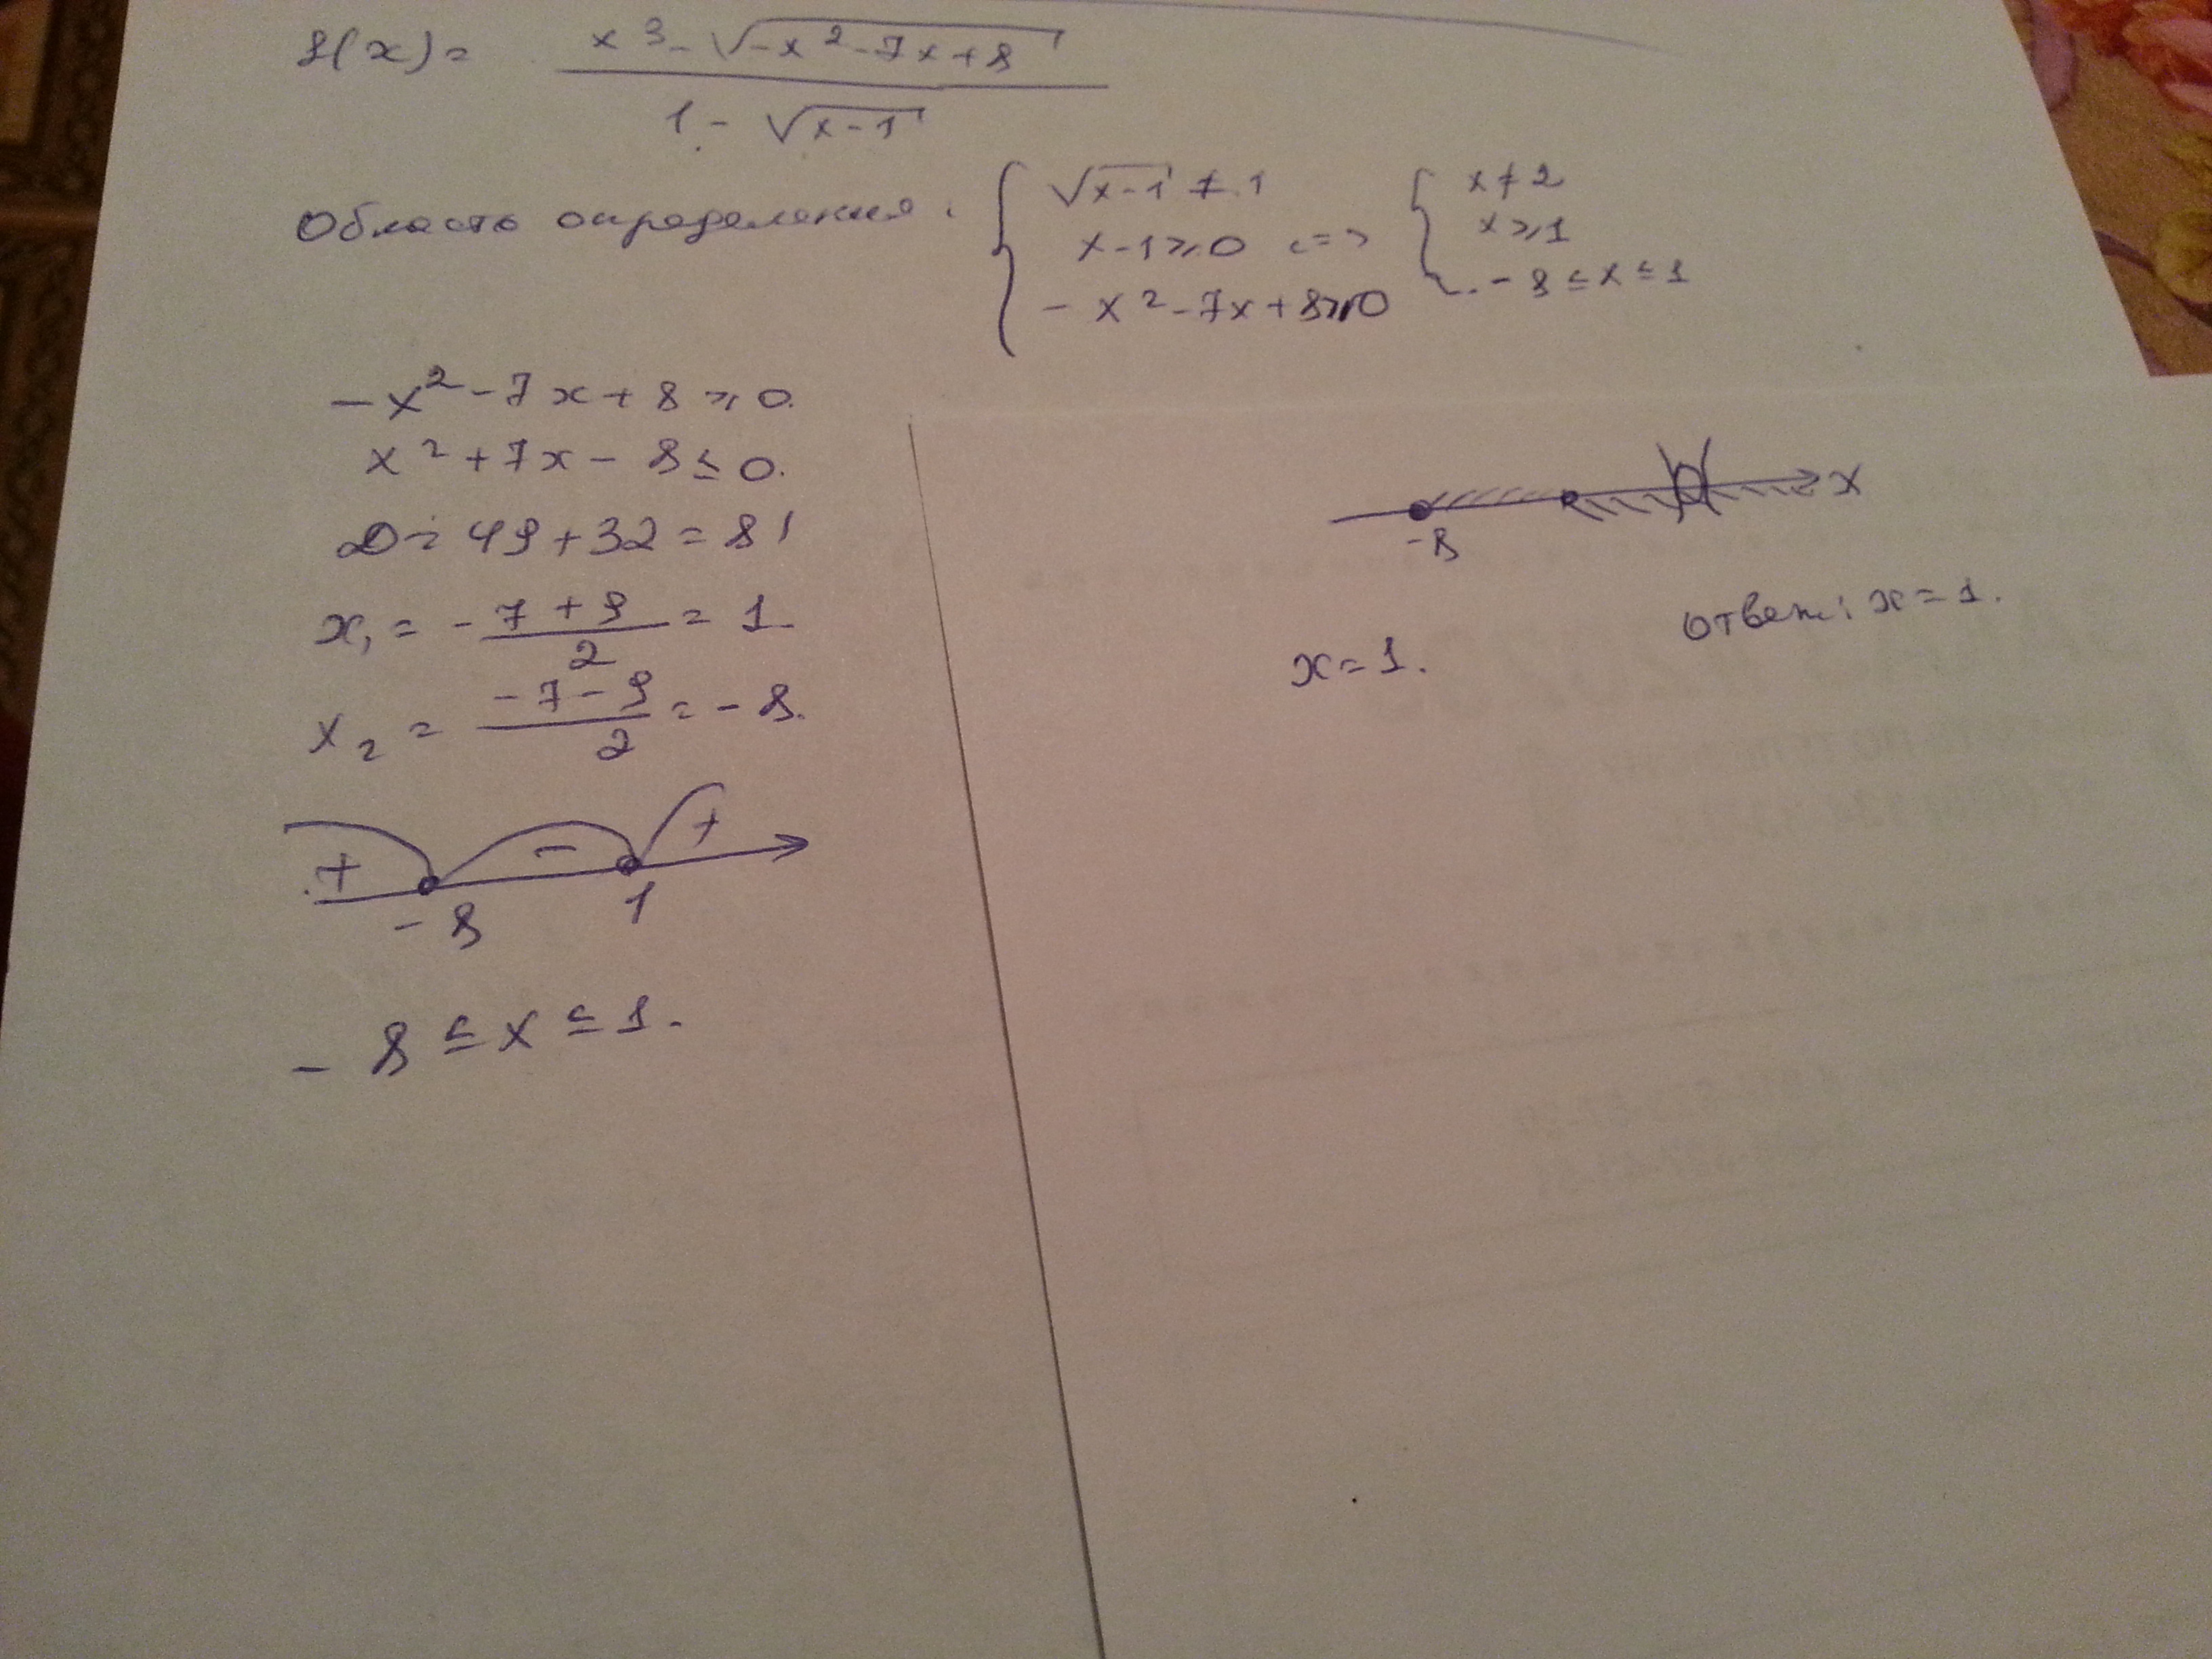 f(x) = (x³ - √(-x² - 7x + 8)) / (1 - √(x-1))
Область определения: { √(x-1) ≠ 1 { x ≠ 2
x - 1 ≥ 0 <=> x ≥ 1
-x² - 7x + 8 ≥ 0 -8 ≤ x ≤ 1
-x² - 7x + 8 ≥ 0.
x² + 7x - 8 ≤ 0.
D = 49 + 32 = 81
x₁ = (-7 + 9) / 2 = 1
x₂ = (-7 - 9) / 2 = -8.
+ - +
-8 1
-8 ≤ x ≤ 1.
x
-8
x = 1.
Ответ: x = 1.